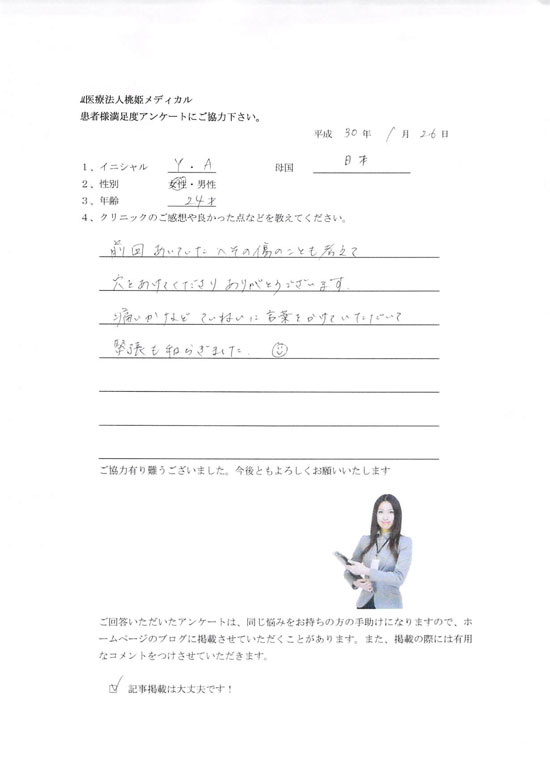 医療法人桃姫メディカル
患者様満足度アンケートにご協力下さい。
平成 30 年 1 月 26 日
1、イニシャル Y・A 母国 日本
2、性別 女性・男性
3、年齢 24才
4、クリニックのご感想や良かった点などを教えてください。
前回あいていたへその傷のことも考えて
穴をあけてくださりありがとうございます。
痛いかなど ていねいに言葉をかけていただいて
緊張も和らぎました。
ご協力有り難うございました。今後ともよろしくお願いいたします
ご回答いただいたアンケートは、同じ悩みをお持ちの方の手助けになりますので、ホ
ームページのブログに掲載させていただくことがあります。また、掲載の際には有用
なコメントをつけさせていただきます。
記事掲載は大丈夫です！